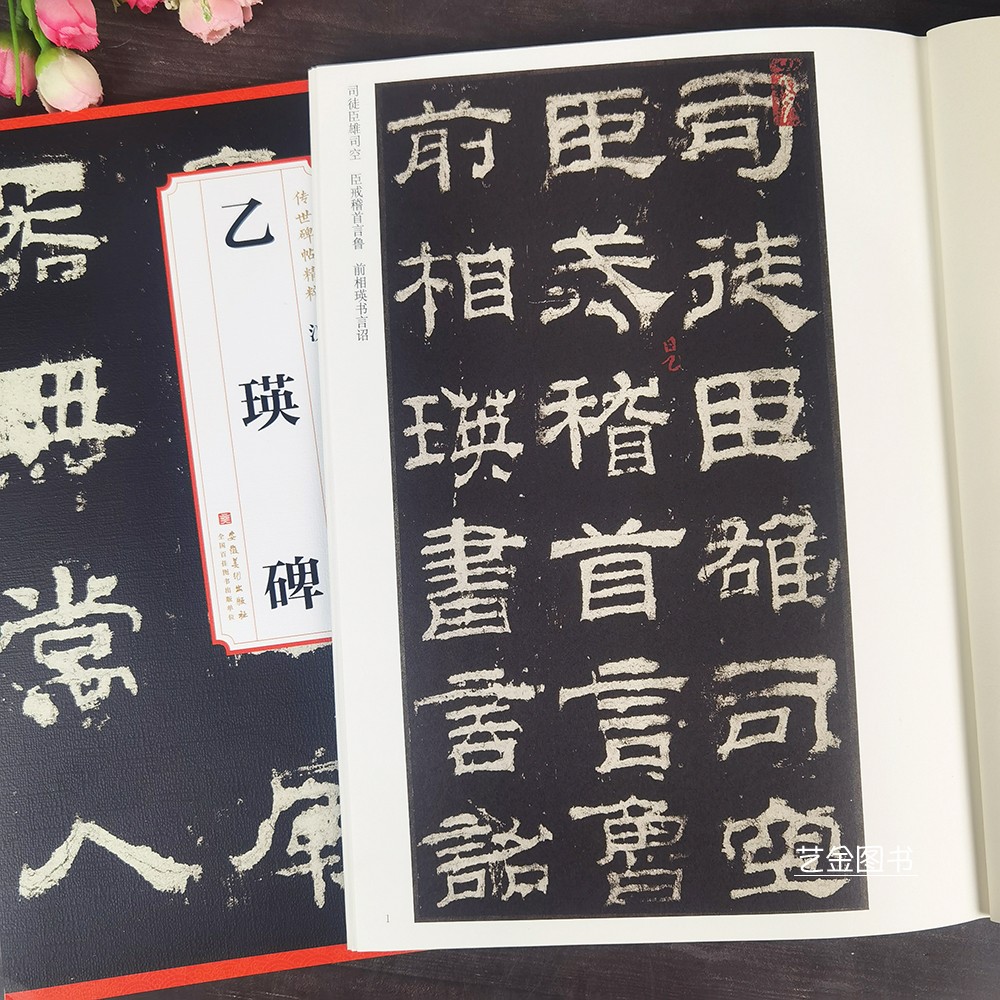 司徒臣雄司空
臣戒稽首言鲁
前相瑛书言诏
司徒臣雄司空
臣戒稽首言魯
前相瑛書言詔
1
传世碑帖精粹
乙瑛碑
安徽美术出版社
全国百佳图书出版单位
常
人
艺金图书